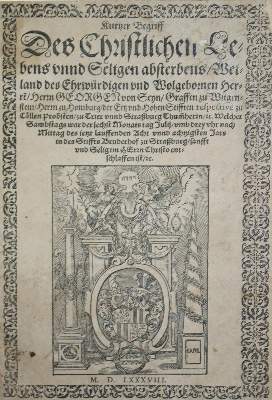 Kurtzer Begriff
Des Christlichen Le-
bens vnnd Seligen absterbens/ Wei-
land des Ehrwürdigen vnd Wolgebornen Her-
ren/ Herrn GEORGEN von Seyn/ Graffen zu Witgen-
stein/ Herrn zu Homburg/ der Ertz vnd Hohen Stifften
Cöllen Probsten/ zu Trier vnnd Straßburg Thumherrn/ &c. Welcher
Sambstags war der sechst Monats tag Julij/ vmb drey vhr nach
Mittag des jetz lauffenden Acht vnnd achtzigsten Jars
in des Stiffts Bruderhof zu Straßburg/ sanfft
vnd Selig im HErrn Christo ent-
schlaffen ist/ &c.
M. D. LXXXVIII.